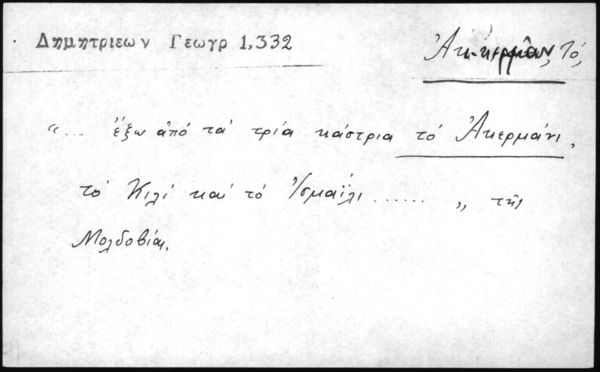 Δημητριεων Γεωγρ 1,332
Ἀκκερμᾶν, τό,
“... ἔξω ἀπό τά τρία κάστρια τό Ἀκερμάνι,
τό Κιλί καί τό Ἰσμαΐλι ...... „ τῆς
Μολδοβίας.